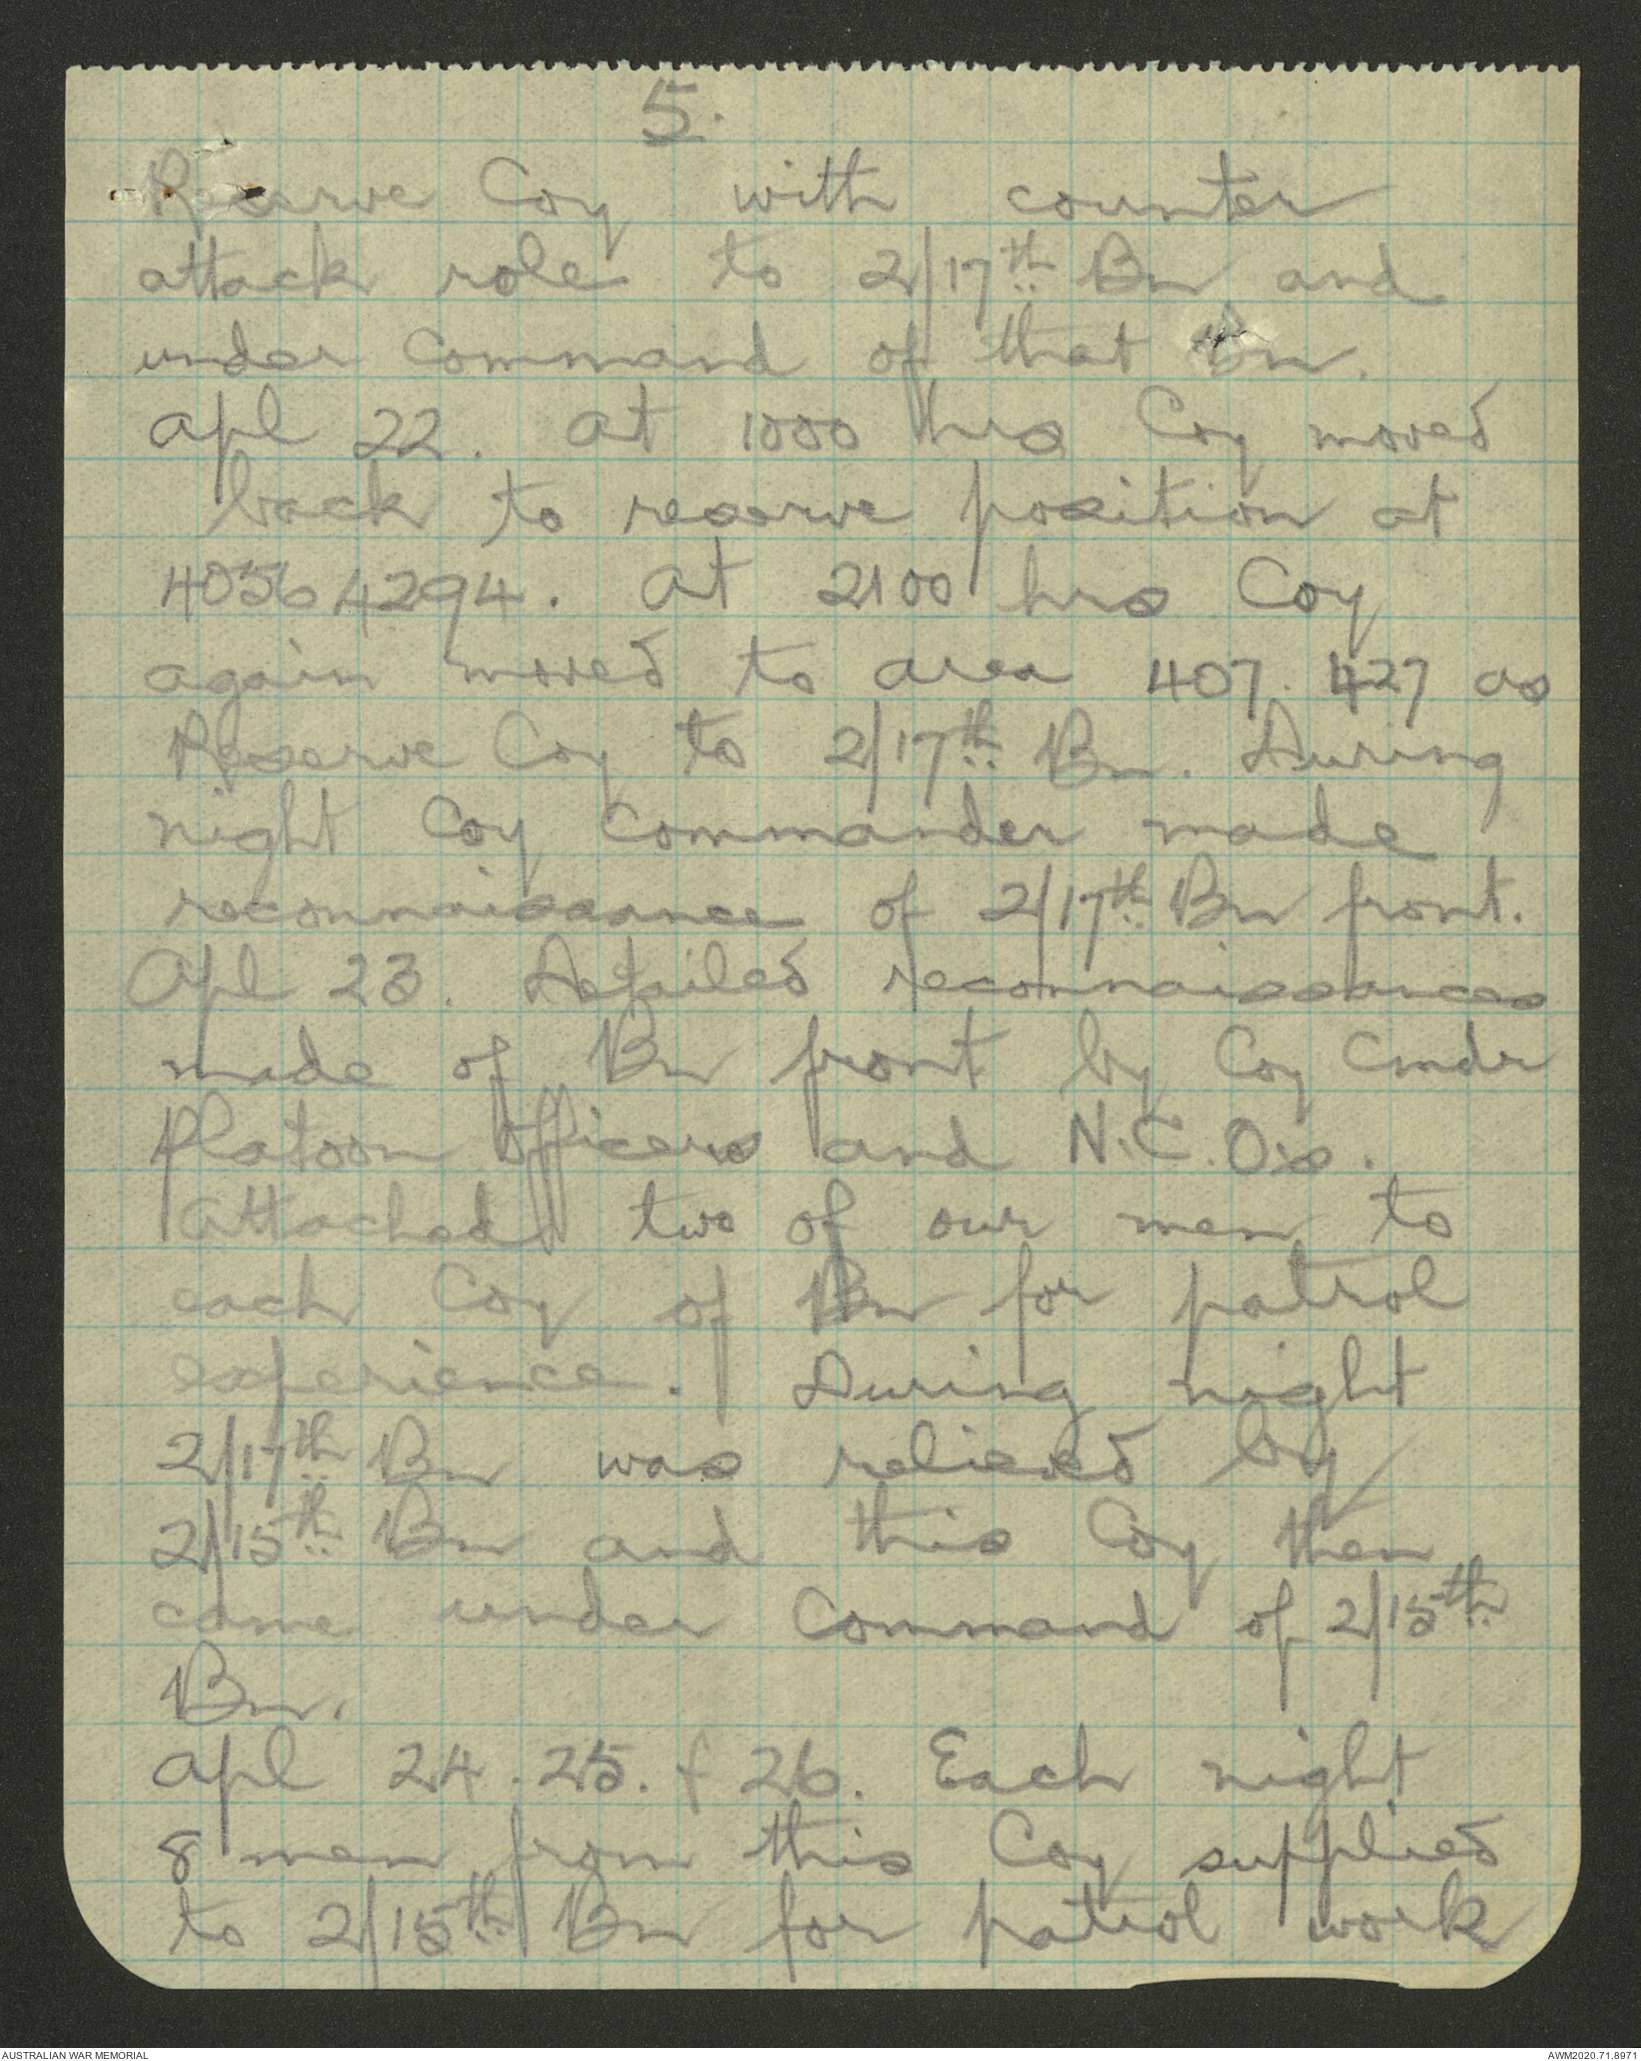 5.
Reserve Coy with counter
attack role to 2/17th Bn and
under command of that Bn.
Apl 22. At 1000 hrs Coy moved
back to reserve position at
40564294. At 2100 hrs Coy
again moved to area 407.427 as
Reserve Coy to 2/17th Bn. During
night Coy Commander made
reconnaissance of 2/17th Bn front.
Apl 23. Detailed reconnaissances
made of Bn front by Coy Cmdr
Platoon Officers and N.C.O's.
Attached two of our men to
each Coy of Bn for patrol
experience. During night
2/17th Bn was relieved by
2/15th Bn and this Coy then
came under command of 2/15th
Bn.
Apl 24. 25. & 26. Each night
8 men from this Coy supplied
to 2/15th Bn for patrol work
AUSTRALIAN WAR MEMORIAL
AWM2020.71.8971